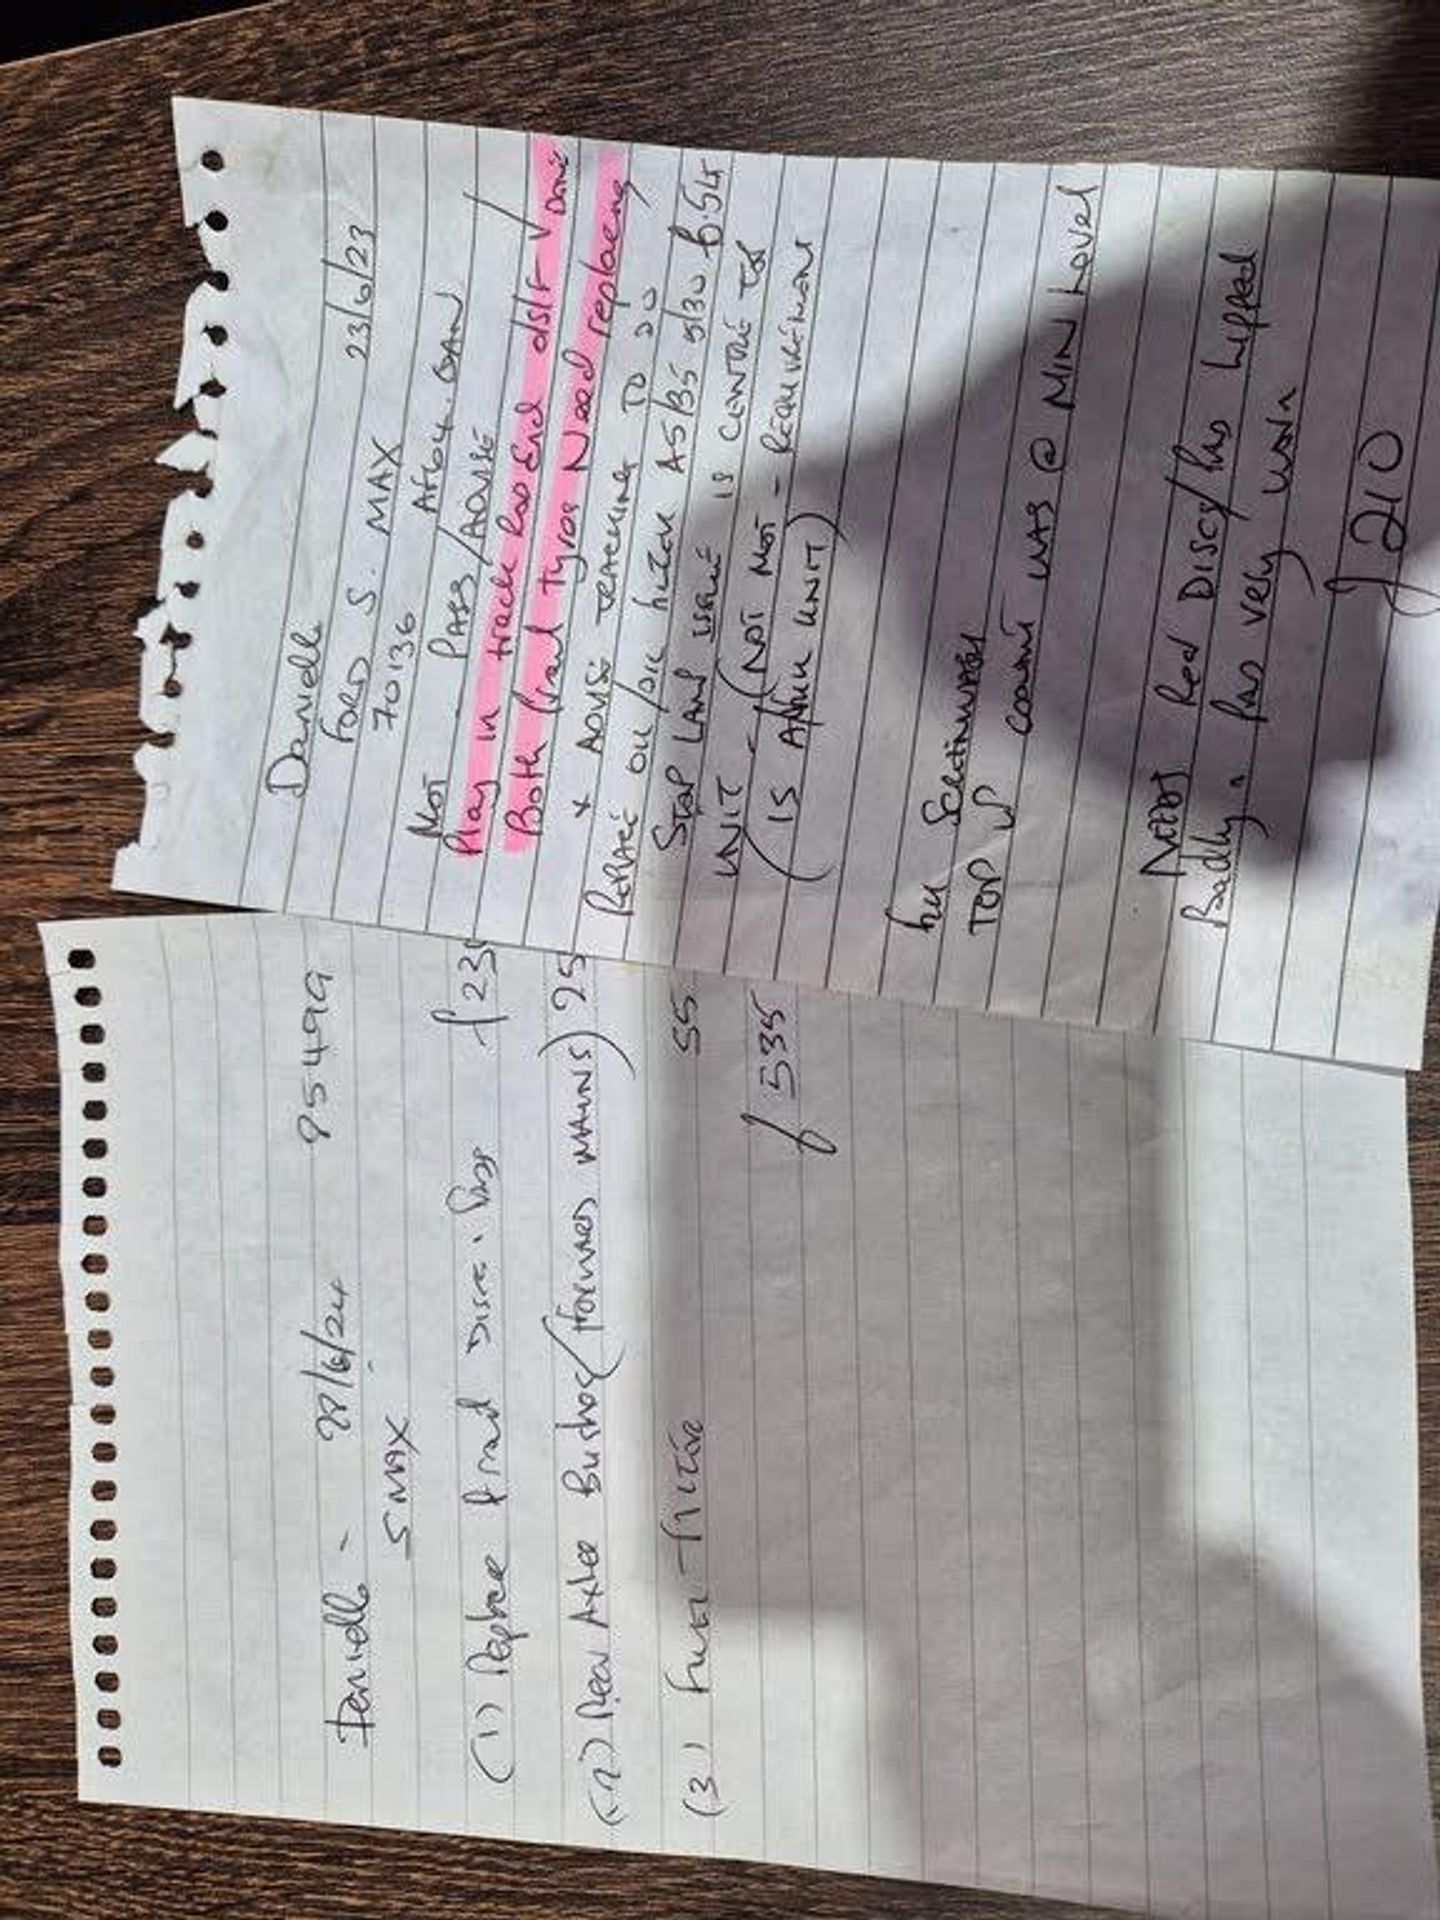 Danielle
FORD S. MAX 23/6/23
70136 AF64.
MOT - PASS/ADVISE
Play in track Rod End o/s/F ✓ Done
Both front tyres Need replacing
* ADVISE TRACKING TO DO
REPLACE OIL/OIL FILTER A5/B5 5/30
STOP LAMP ISSUE IS CENTRE TOP
UNIT - (NOT MOT - REQUIREMENT
(IS AFTER UNIT)
TOP UP
COOLANT WAS @ MIN Level
NEEDS Rear DISCS/Pads Lipped
Badly & Pads very worn
£210
Danielle - /6/24 95499
S MAX
(1) Replace front Discs & Pads
(2) Rear Axle Bushes (FORWARD MAINS)
(3) FUEL FILTER 55
£535